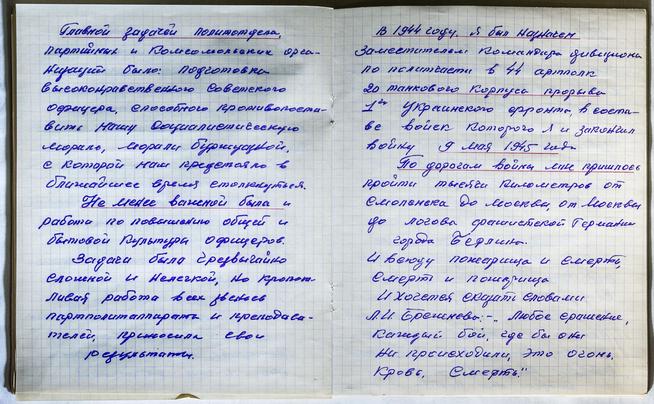 Главной задачей политотдела,
партийных и комсомольских орга-
низаций было: подготовка
высоконравственного советского
офицера, способного противопоста-
вить нашу социалистическую
мораль, морали буржуазной,
с которой нам предстояло в
ближайшее время столкнуться.
Не менее важной была и
работа по повышению общей и
бытовой культуры офицеров.
Задача была чрезвычайно
сложной и нелегкой, но кропот-
ливая работа всех звеньев
партполитаппарата и преподава-
телей, приносила свои
результаты.
В 1944 году. Я был назначен
заместителем командира дивизиона
по политчасти в 44 артполк
20 танкового корпуса прорыва
1го Украинского фронта, в соста-
ве войск которого я и закончил
войну 9 мая 1945 года
По дорогам войны мне пришлось
пройти тысячи километров от
Смоленска до Москвы, от Москвы
до логова фашистской Германии
города Берлина.
И всюду пожарища и смерть,
смерть и пожарища
И хочется сказать словами
Л.И Брежнева:- „Любое сражение,
каждый бой, где бы они
ни происходили, это огонь,
кровь, смерть."